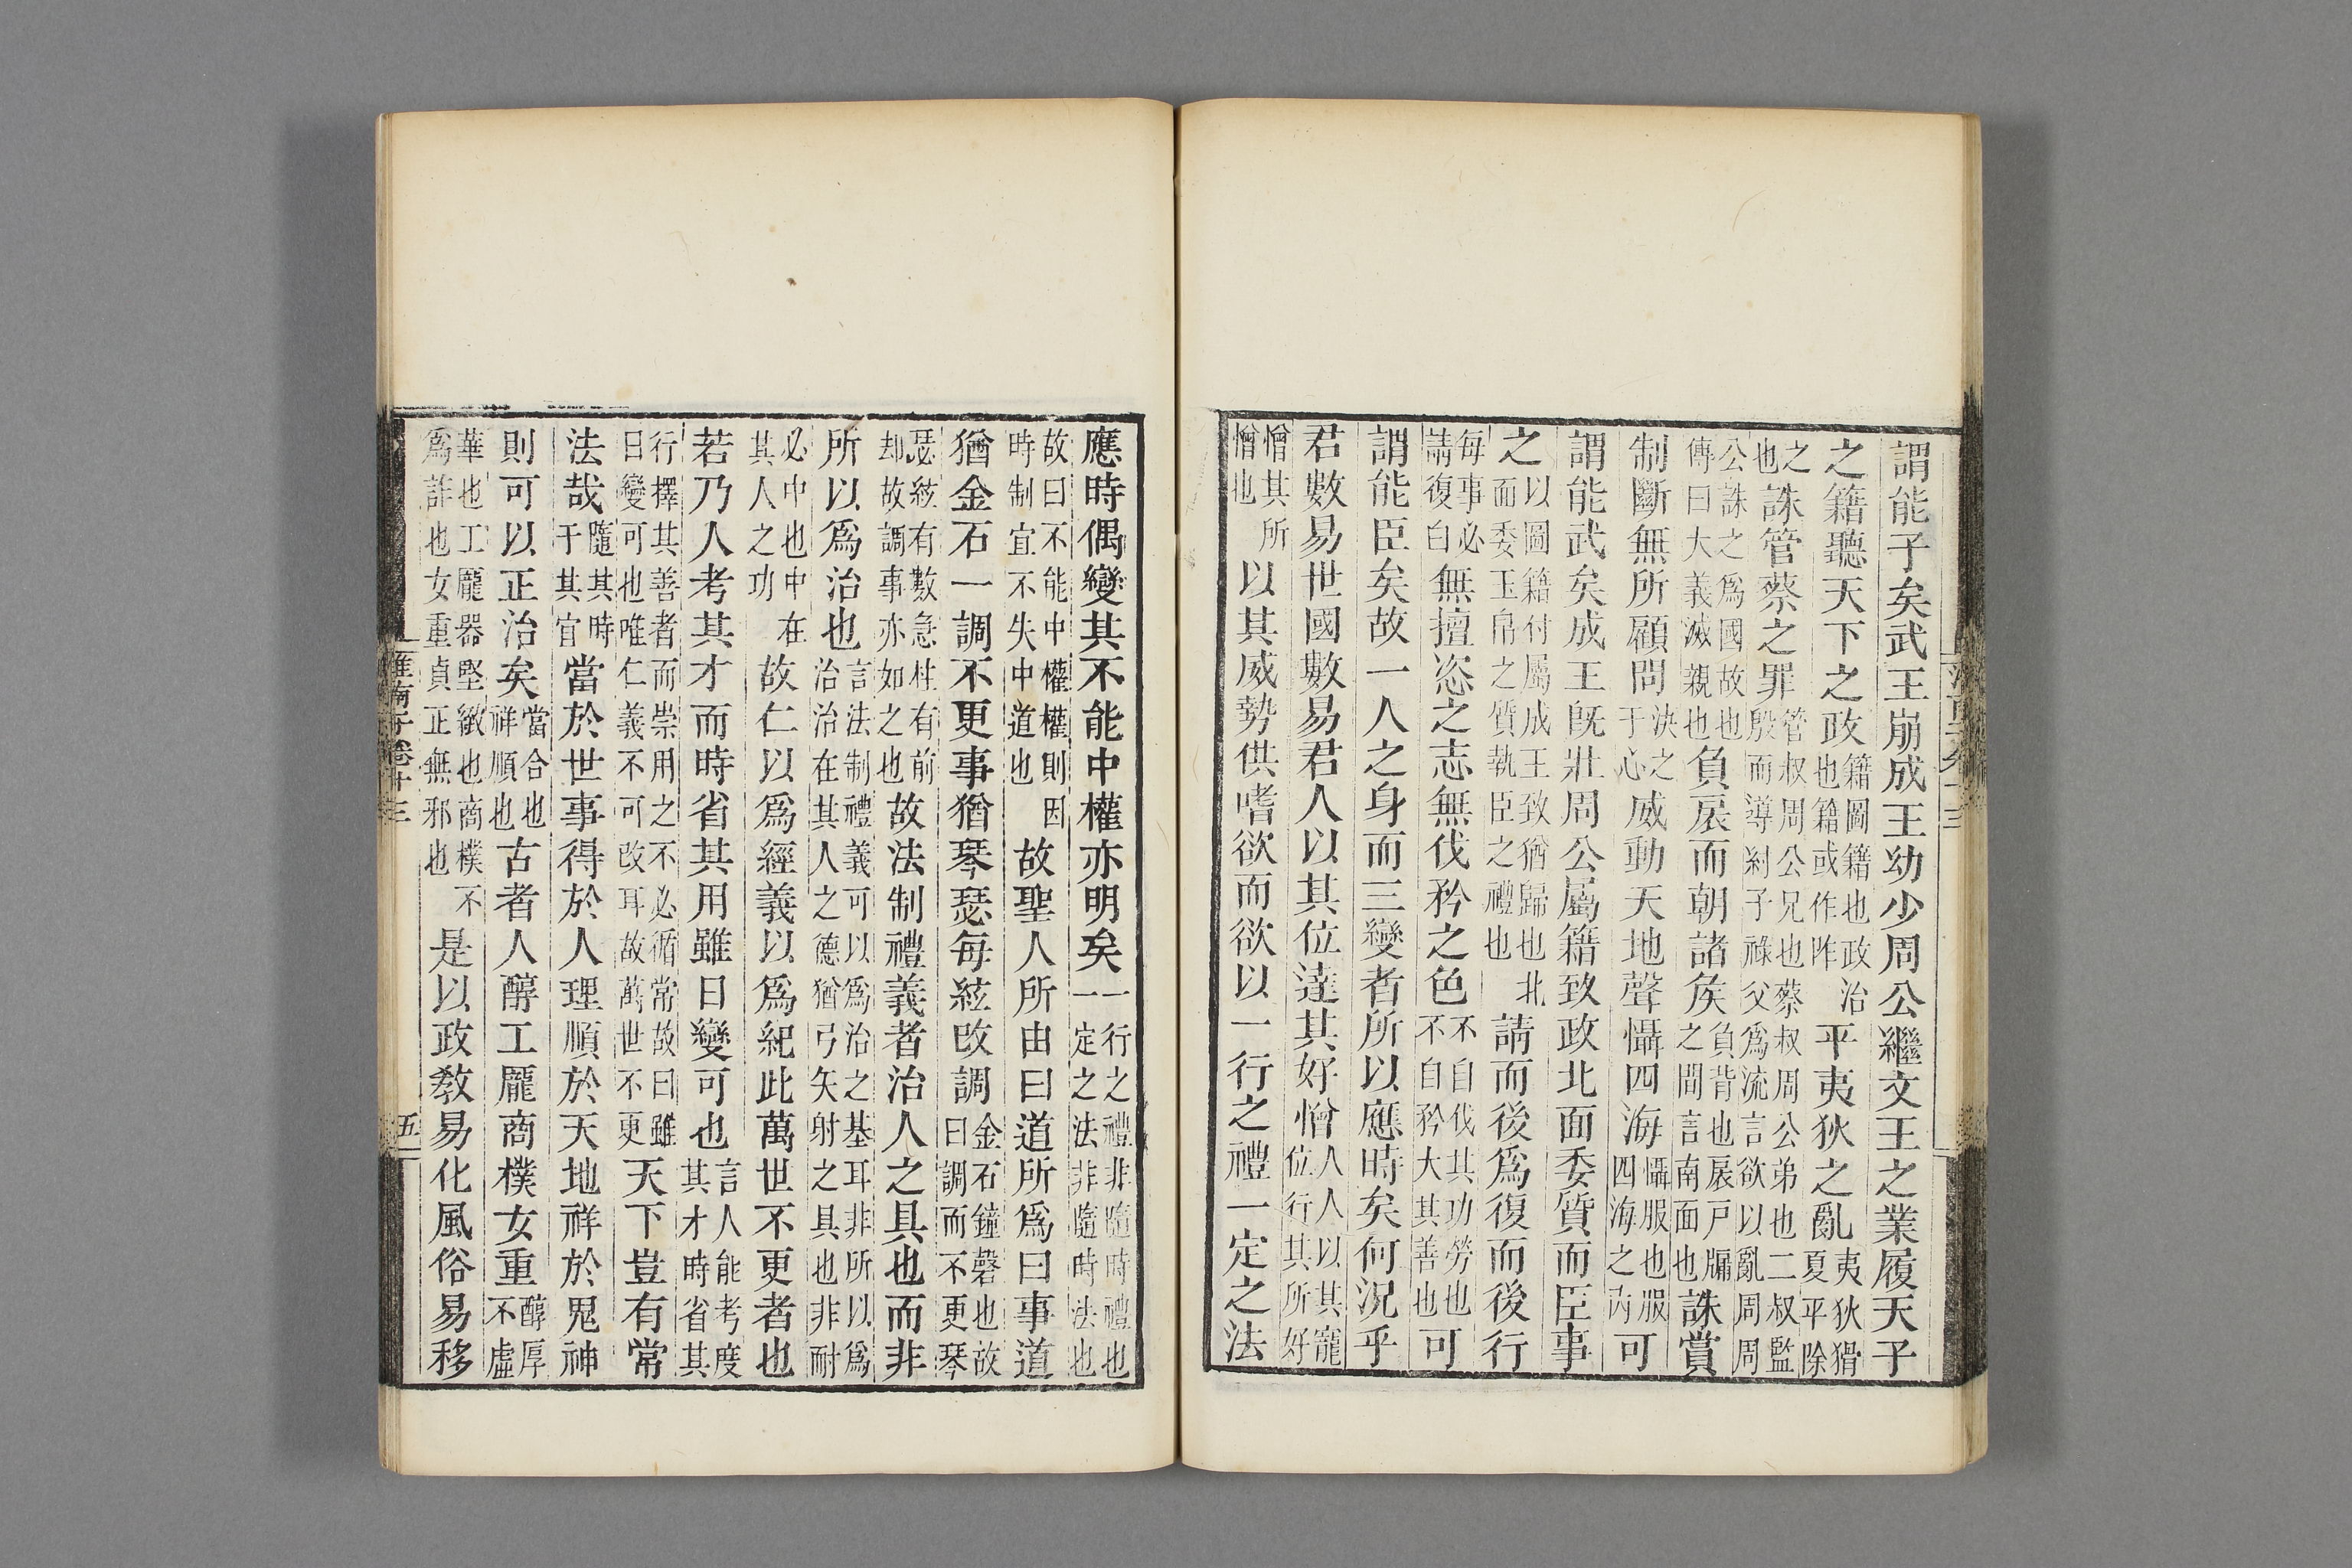 謂能子矣武王崩成王幼少周公繼文王之業履天子
之籍聽天下之政籍圖籍也政治也籍或作阼平夷狄之亂夷狄猾夏平除
之也誅管蔡之罪管叔周公兄也蔡叔周公弟也二叔監殷而導紂子祿父爲流言欲以亂周周
公誅之爲國故也傳曰大義滅親也負扆而朝諸矦負背也扆戸牖之間言南面也誅賞
制斷無所顧問決之于心威動天地聲懾四海懾服也服四海之内可
謂能武矣成王旣壯周公屬籍致政北面委質而臣事
之以圖籍付屬成王致猶歸也北面委玉帛之質執臣之禮也請而後爲復而後行
每事必請復白無擅恣之志無伐矜之色不自伐其功勞也不自矜大其善也可
謂能臣矣故一人之身而三變者所以應時矣何況乎
君數易世國數易君人以其位達其好憎人人以其寵位行其所好
憎其所憎也以其威勢供嗜欲而欲以一行之禮一定之法
應時偶變其不能中權亦明矣一行之禮非隨時禮也一定之法非隨時法也
故曰不能中權權則因時制宜不失中道也故聖人所由曰道所爲曰事道
猶金石一調不更事猶琴瑟每絃改調金石鐘磬也故曰調而不更琴
瑟絃有數急柱有前却故調事亦如之也故法制禮義者治人之具也而非
所以爲治也言法制禮義可以爲治之基耳非所以爲治治在其人之德猶弓矢射之具也非耐
必中也中在其人之功故仁以爲經義以爲紀此萬世不更者也
若乃人考其才而時省其用雖日變可也言人能考度其才時省其
行擇其善者而崇用之不必循常故曰雖日變可也唯仁義不可改耳故萬世不更天下豈有常
法哉隨其時于其宜當於世事得於人理順於天地祥於鬼神
則可以正治矣當合也祥順也古者人醇工龐商樸女重醇厚不虛
華也工龐器堅緻也商樸不爲詐也女重貞正無邪也是以政教易化風俗易移
淮南子卷十三
五